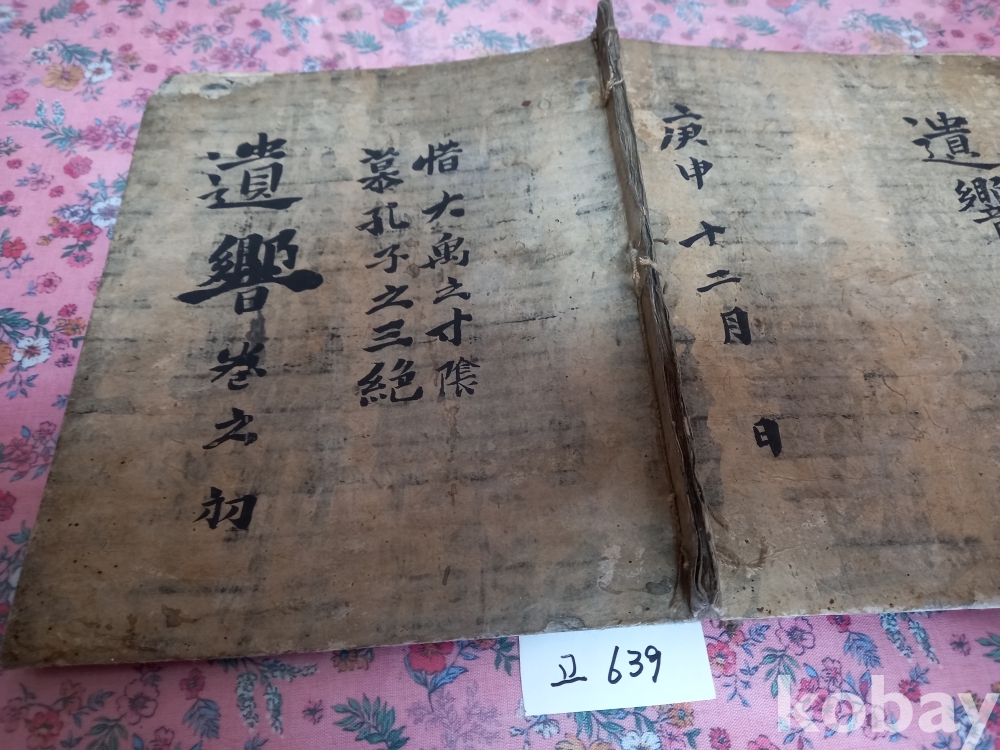 遺響
庚申十二月 日
惜大禹之寸陰
慕孔子之三絶
遺響卷之初
고 639
kobay